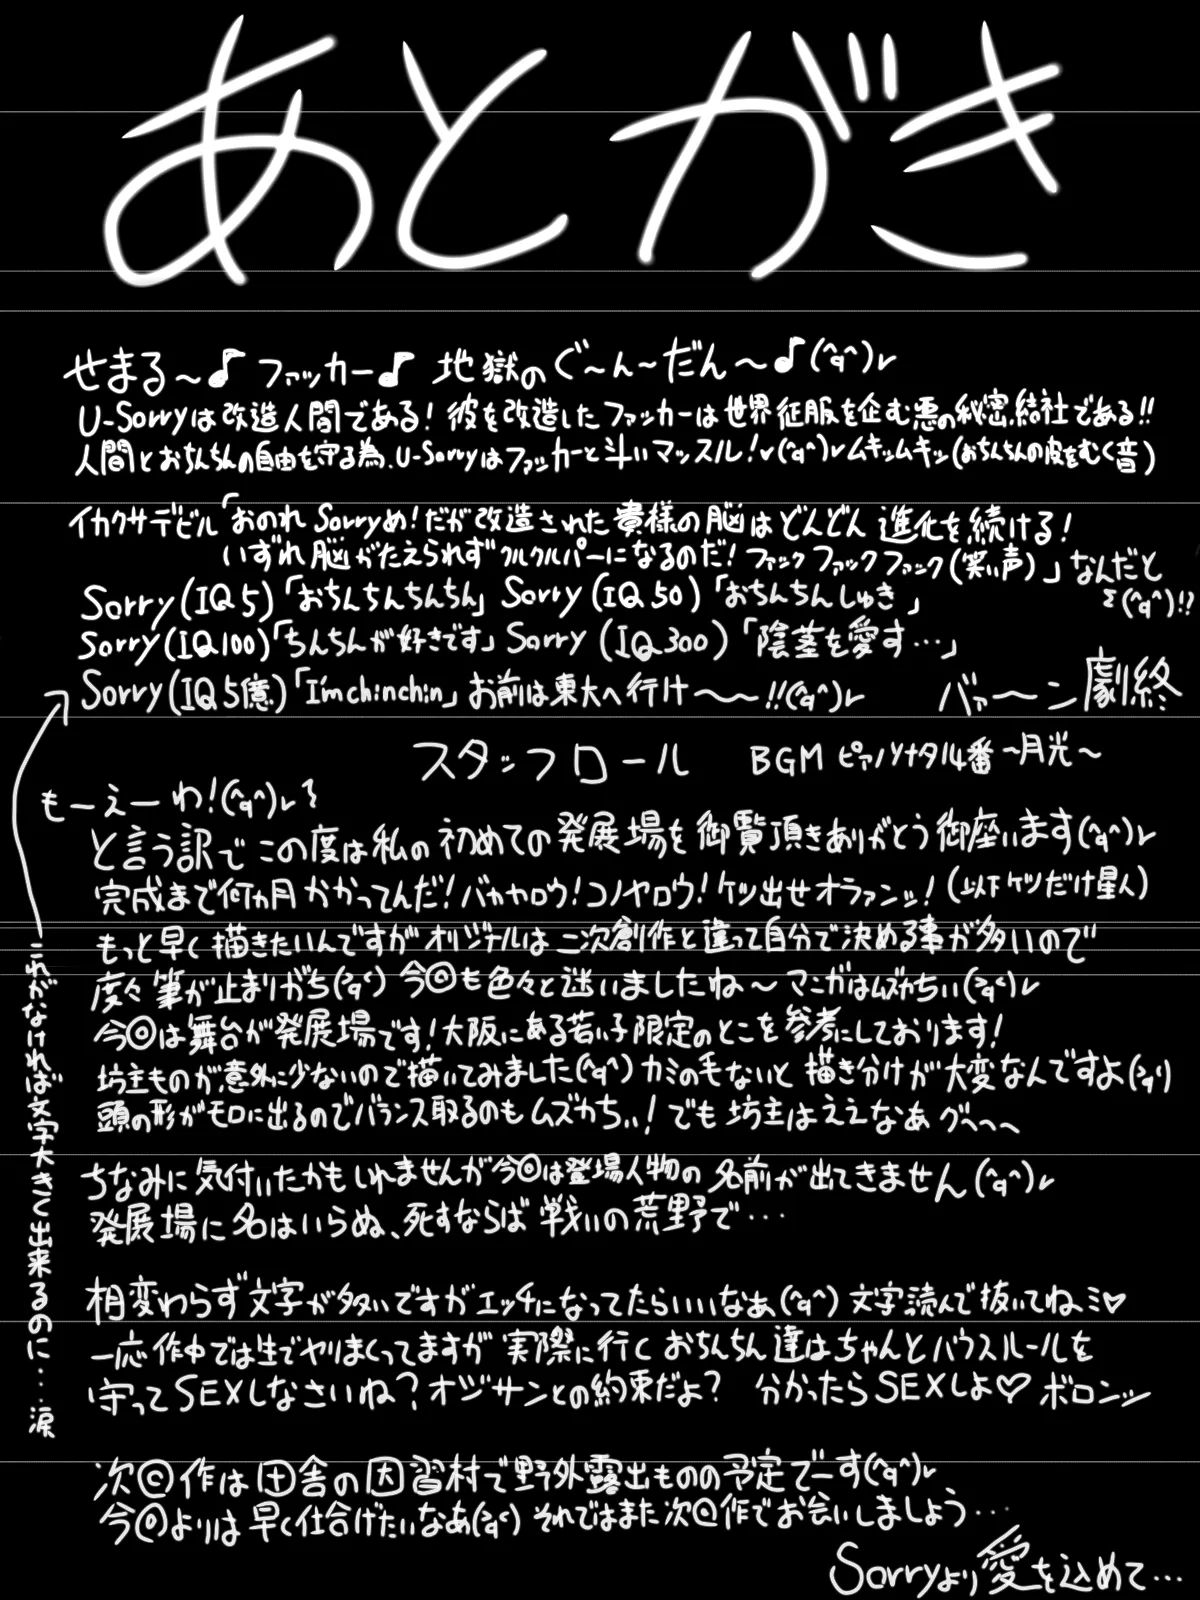 あとがき
せまる～♪ ファッカー♪ 地獄のぐ～ん～だん～♪(^q^)r
U-Sorryは改造人間である！彼を改造したファッカーは世界征服を企む悪の秘密結社である!!
人間とおちんちんの自由を守る為、U-Sorryはファッカーと斗いマッスル！v(^q^)rムキッムキッ(おちんちんの皮をむく音)
イカクサデビル「おのれSorryめ！だが改造された貴様の脳はどんどん進化を続ける！
いずれ脳がたえられずクルクルパーになるのだ！ファックファックファック(笑い声)」なんだと
Σ(^q^)!?
Sorry(IQ5)「おちんちんちんちん」Sorry(IQ50)「おちんちんしゅき」
Sorry(IQ100)「ちんちんが好きです」Sorry(IQ300)「陰茎を愛す…」
Sorry(IQ5億)「I'm chinchin」お前は東大へ行け～～!!(^q^)r バァ～ン 劇終
スタッフロール BGM ピアノソナタ14番～月光～
もーえーわ！(^q^)r
と言う訳でこの度は私の初めての発展場を御覧頂きありがとう御座います(^q^)r
完成まで何ヵ月かかってんだ！バカヤロウ！コノヤロウ！ケツ出せオラァンッ！(以下ケツだけ星人)
もっと早く描きたいんですがオリジナルは二次創作と違って自分で決める事が多いので
度々筆が止まりがち(>q<) 今回も色々と迷いましたね～マンガはムズカちぃ(>q<)r
今回は舞台が発展場です！大阪にある若い子限定のとこを参考にしております！
坊主ものが意外に少ないので描いてみました(^q^) カミの毛ないと描き分けが大変なんですよ(>q<)
頭の形がモロに出るのでバランス取るのもムズカちぃ！でも坊主はええなぁグへへへ
ちなみに気付いたかもしれませんが今回は登場人物の名前が出てきません(^q^)r
発展場に名はいらぬ、死すならば戦いの荒野で…
相変わらず文字が多いですがエッチになってたらいいなぁ(^q^) 文字読んで抜いてねミ♡
一応作中では生でヤリまくってますが実際に行くおちんちん達はちゃんとハウスルールを
守ってSEXしなさいね？オジサンとの約束だよ？ 分かったらSEXしよ♡ ボロンッ
次回作は田舎の因習村で野外露出ものの予定でーす(^q^)r
今回よりは早く仕上げたいなぁ(>q<) それではまた次回作でお会いしましょう…
Sorryより愛を込めて…
これがなければ文字大きく出来るのに…涙